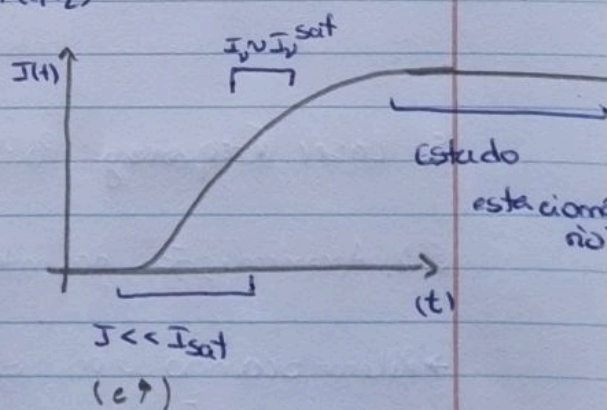 I_ν ~ I_ν^sat
I(t)
Estado
estacioná
rio
(t)
I << I_sat
(e↑)